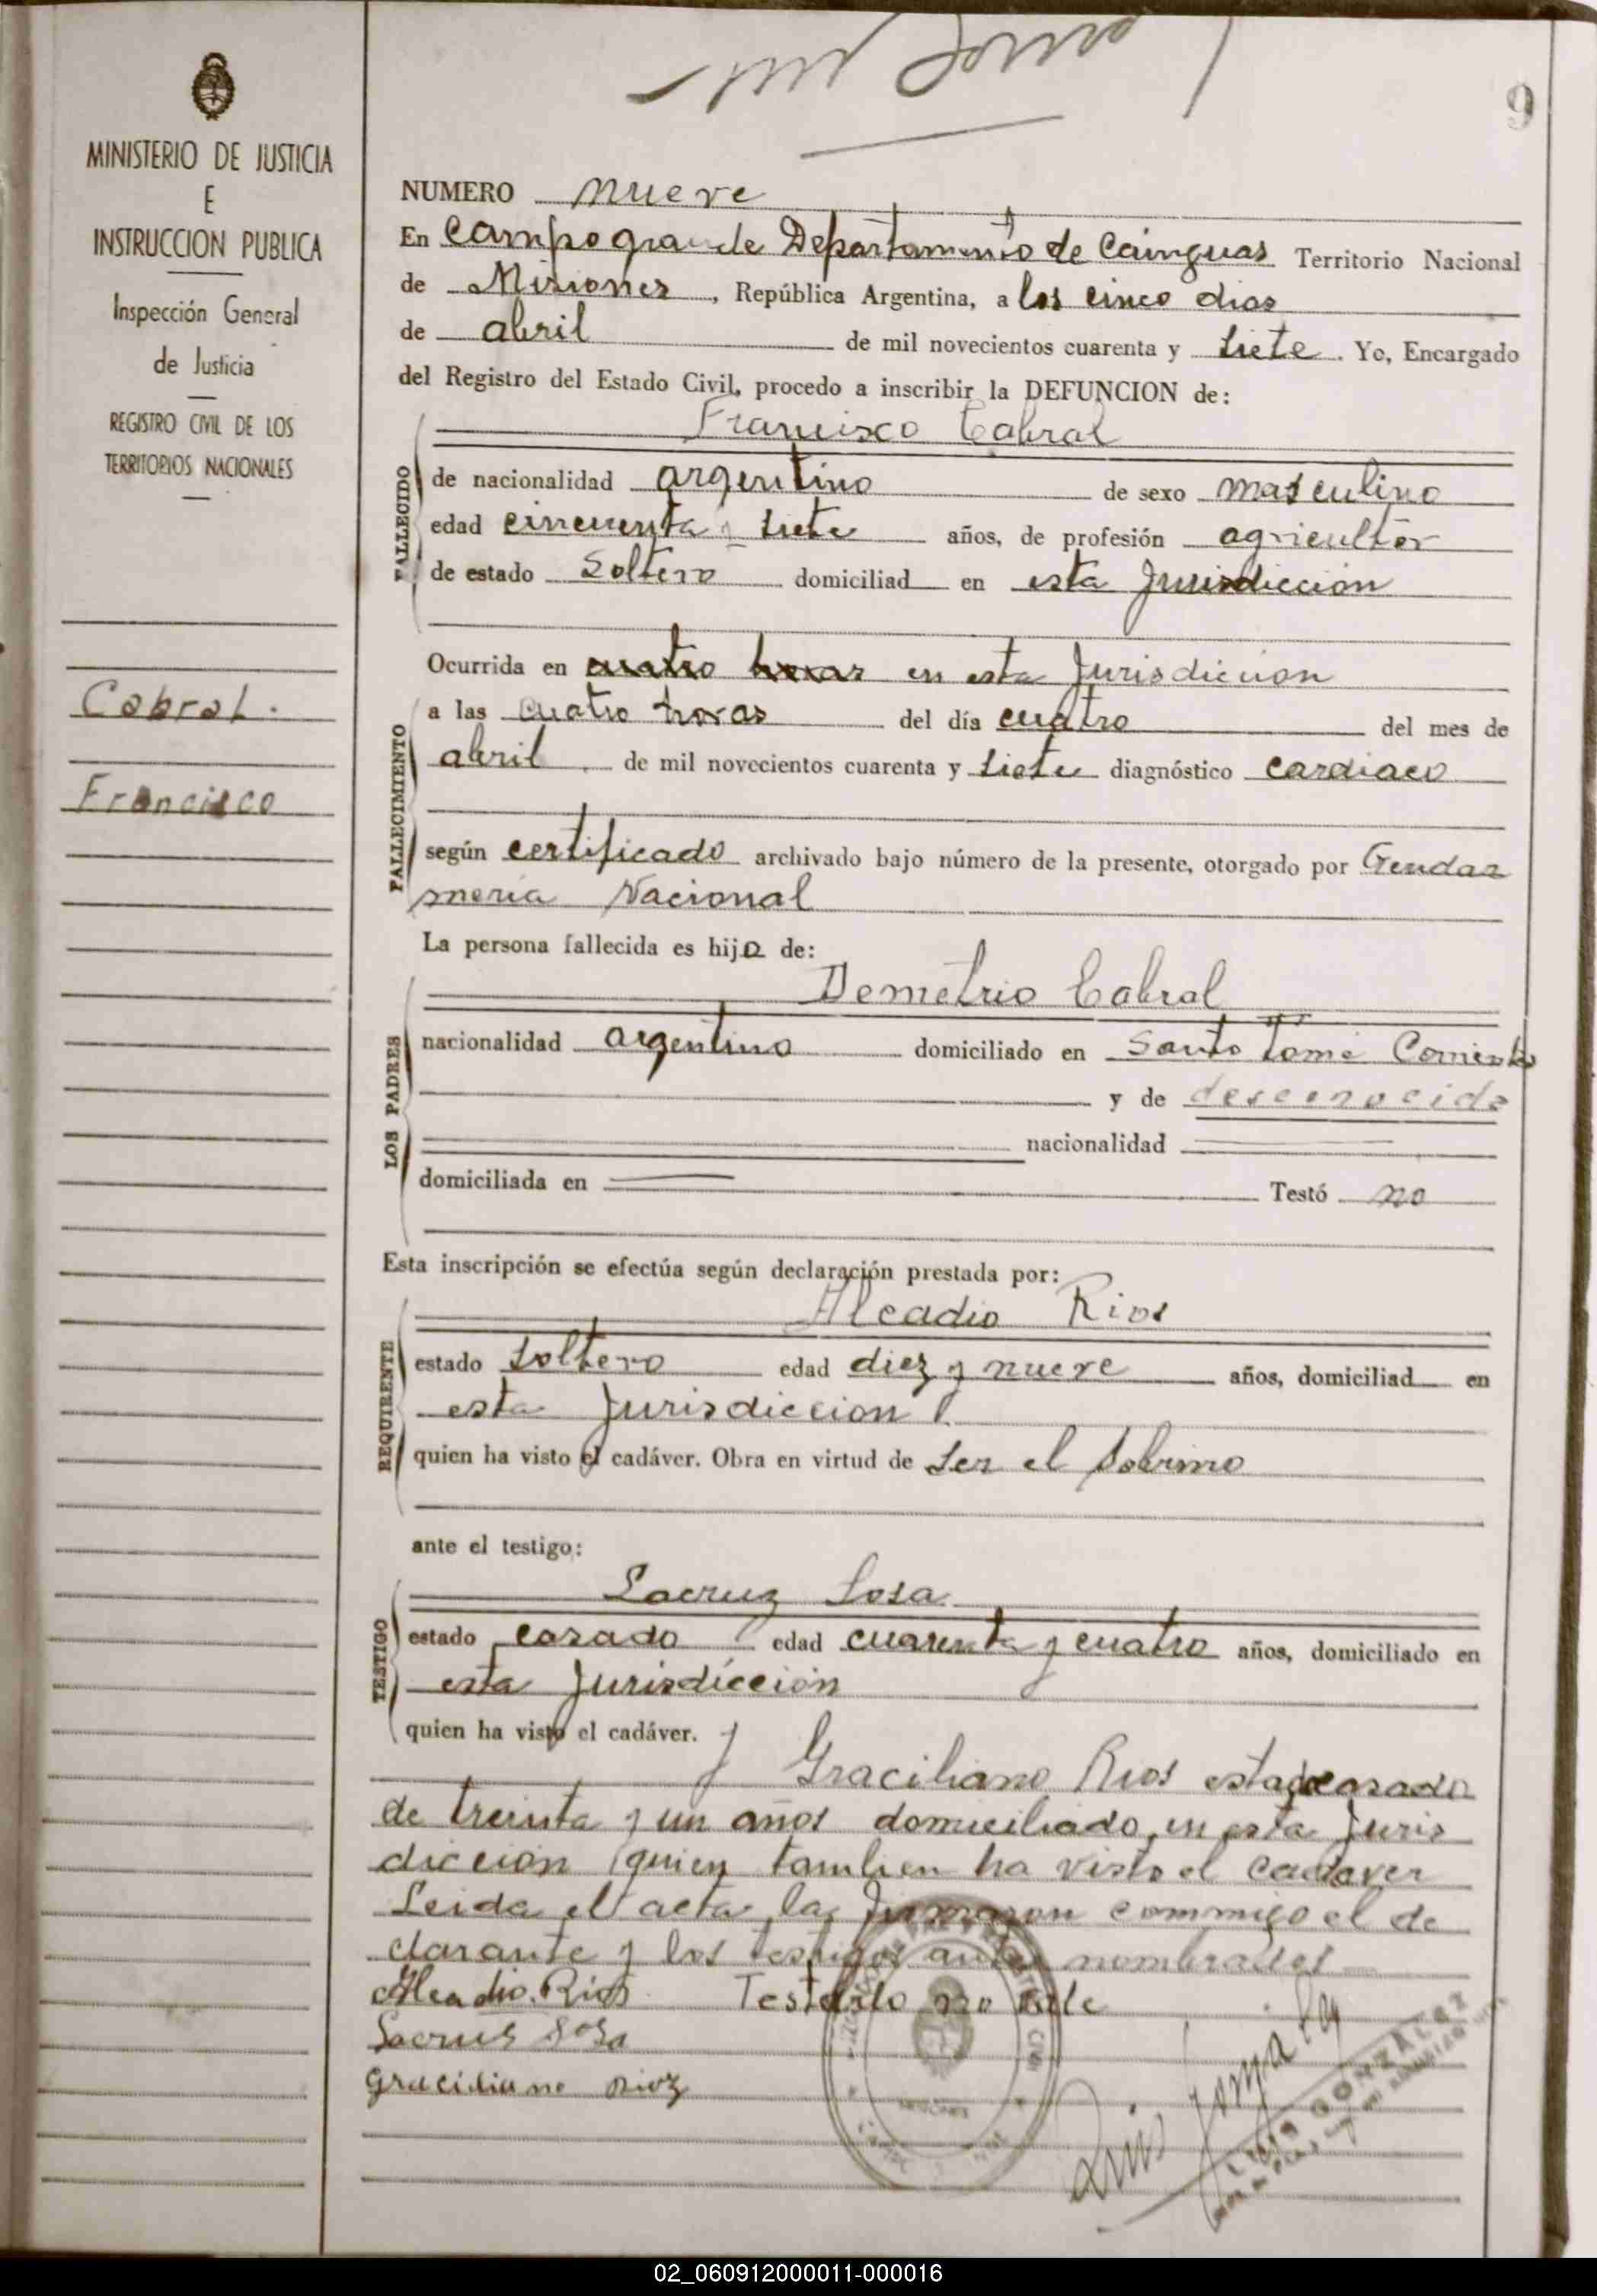 9
MINISTERIO DE JUSTICIA
E
INSTRUCCION PUBLICA
Inspección General
de Justicia
REGISTRO CIVIL DE LOS
TERRITORIOS NACIONALES
Cabral.
Francisco
NUMERO nueve
En Campo grande Departamento de Cainguas Territorio Nacional
de Misiones, República Argentina, a los cinco dias
de abril de mil novecientos cuarenta y siete. Yo, Encargado
del Registro del Estado Civil, procedo a inscribir la DEFUNCION de:
Francisco Cabral
FALLECIDO
de nacionalidad argentino de sexo masculino
edad cincuenta y siete años, de profesión agricultor
de estado Soltero domiciliad en esta Jurisdicción
Ocurrida en cuatro horas en esta Jurisdicion
a las cuatro horas del día cuatro del mes de
FALLECIMIENTO
abril de mil novecientos cuarenta y siete diagnóstico cardiaco
según certificado archivado bajo número de la presente, otorgado por Gendar
meria Nacional
La persona fallecida es hijo de:
Demetrio Cabral
LOS PADRES
nacionalidad argentino domiciliado en Santo Tomé Corrientes
y de desconocida
nacionalidad
domiciliada en Testó no
Esta inscripción se efectúa según declaración prestada por:
Alcadio Rios
REQUIRENTE
estado soltero edad diez y nueve años, domiciliad en
esta Jurisdiccion
quien ha visto el cadáver. Obra en virtud de ser el sobrino
ante el testigo:
Lacruz Sosa
TESTIGO
estado casado edad cuarenta y cuatro años, domiciliado en
esta Jurisdicción
quien ha visto el cadáver. y
Graciliano Rios estado casado
de treinta y un años domiciliado en esta Juris
diccion quien tambien ha visto el cadaver
Leida el acta la firmaron commigo el de
clarante y los testigos antes nombrados
Alcadio Rios Testado no vale
Lacrus Sosa
Graciliano Rioz
LUIS GONZALEZ
02_060912000011-000016